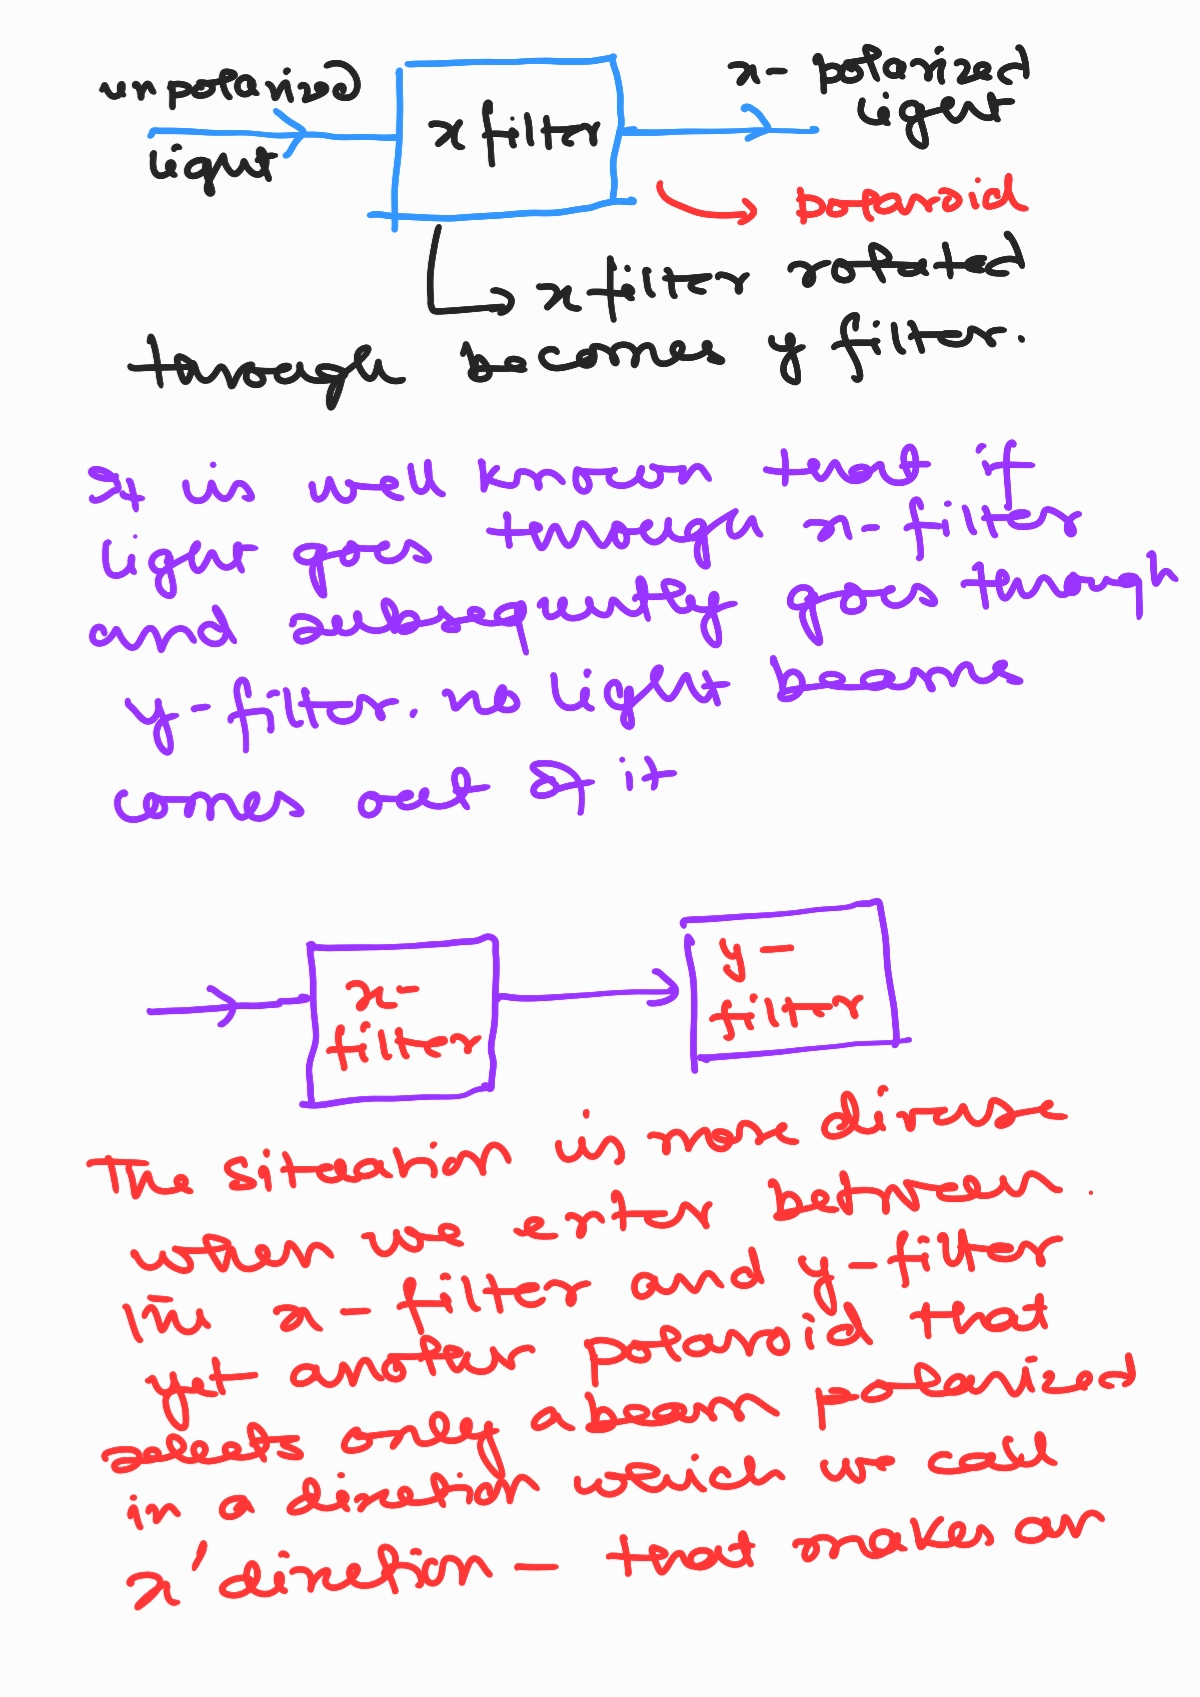 unpolarized
light
x filter
x- polarized
light
polaroid
x filter rotated
through becomes y filter.
It is well known that if
light goes through x-filter
and subsequently goes through
y-filter. no light beams
comes out of it
x-
filter
y-
filter
The situation is more diverse
when we enter between
the x-filter and y-filter
yet another polaroid that
selects only a beam polarized
in a direction which we call
x' direction - that makes an